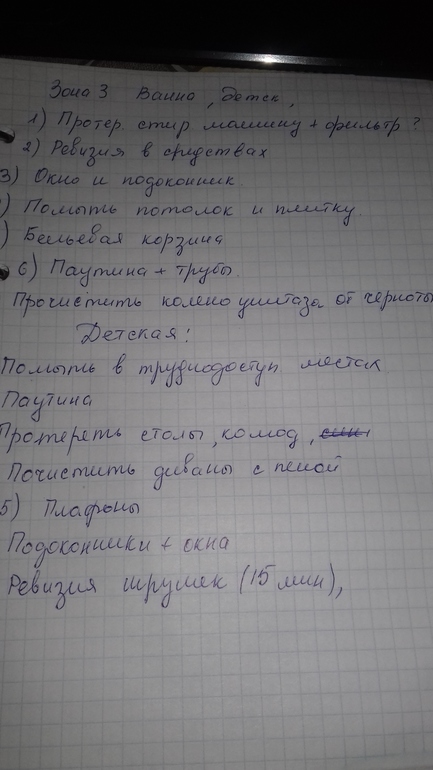 Зона 3 Ванна, детск,
1) Протер. стир машину + фильтр?
2) Ревизия в средствах
3) Окно и подоконник.
) Помыть потолок и плитку.
) Бельевая корзина
6) Паутина + трубы.
Прочистить колено унитаза от черноты
Детская:
Помыть в труднодоступ. местах
Паутина
Протереть столы, комод,
Почистить диваны с пеной
5) Плафоны
Подоконники + окна
Ревизия шрушек (15 мин),